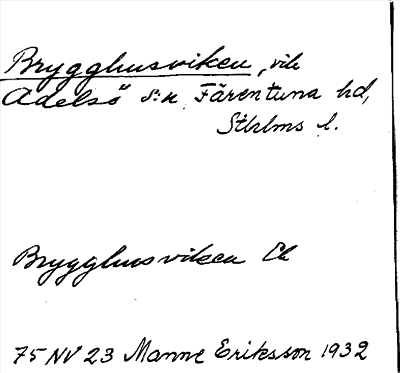 Brygghusviken, vik
Adelsö s:n Färentuna hd,
Sthlms l.
Brygghusviken Ek
75 NV 23 Manne Eriksson 1932